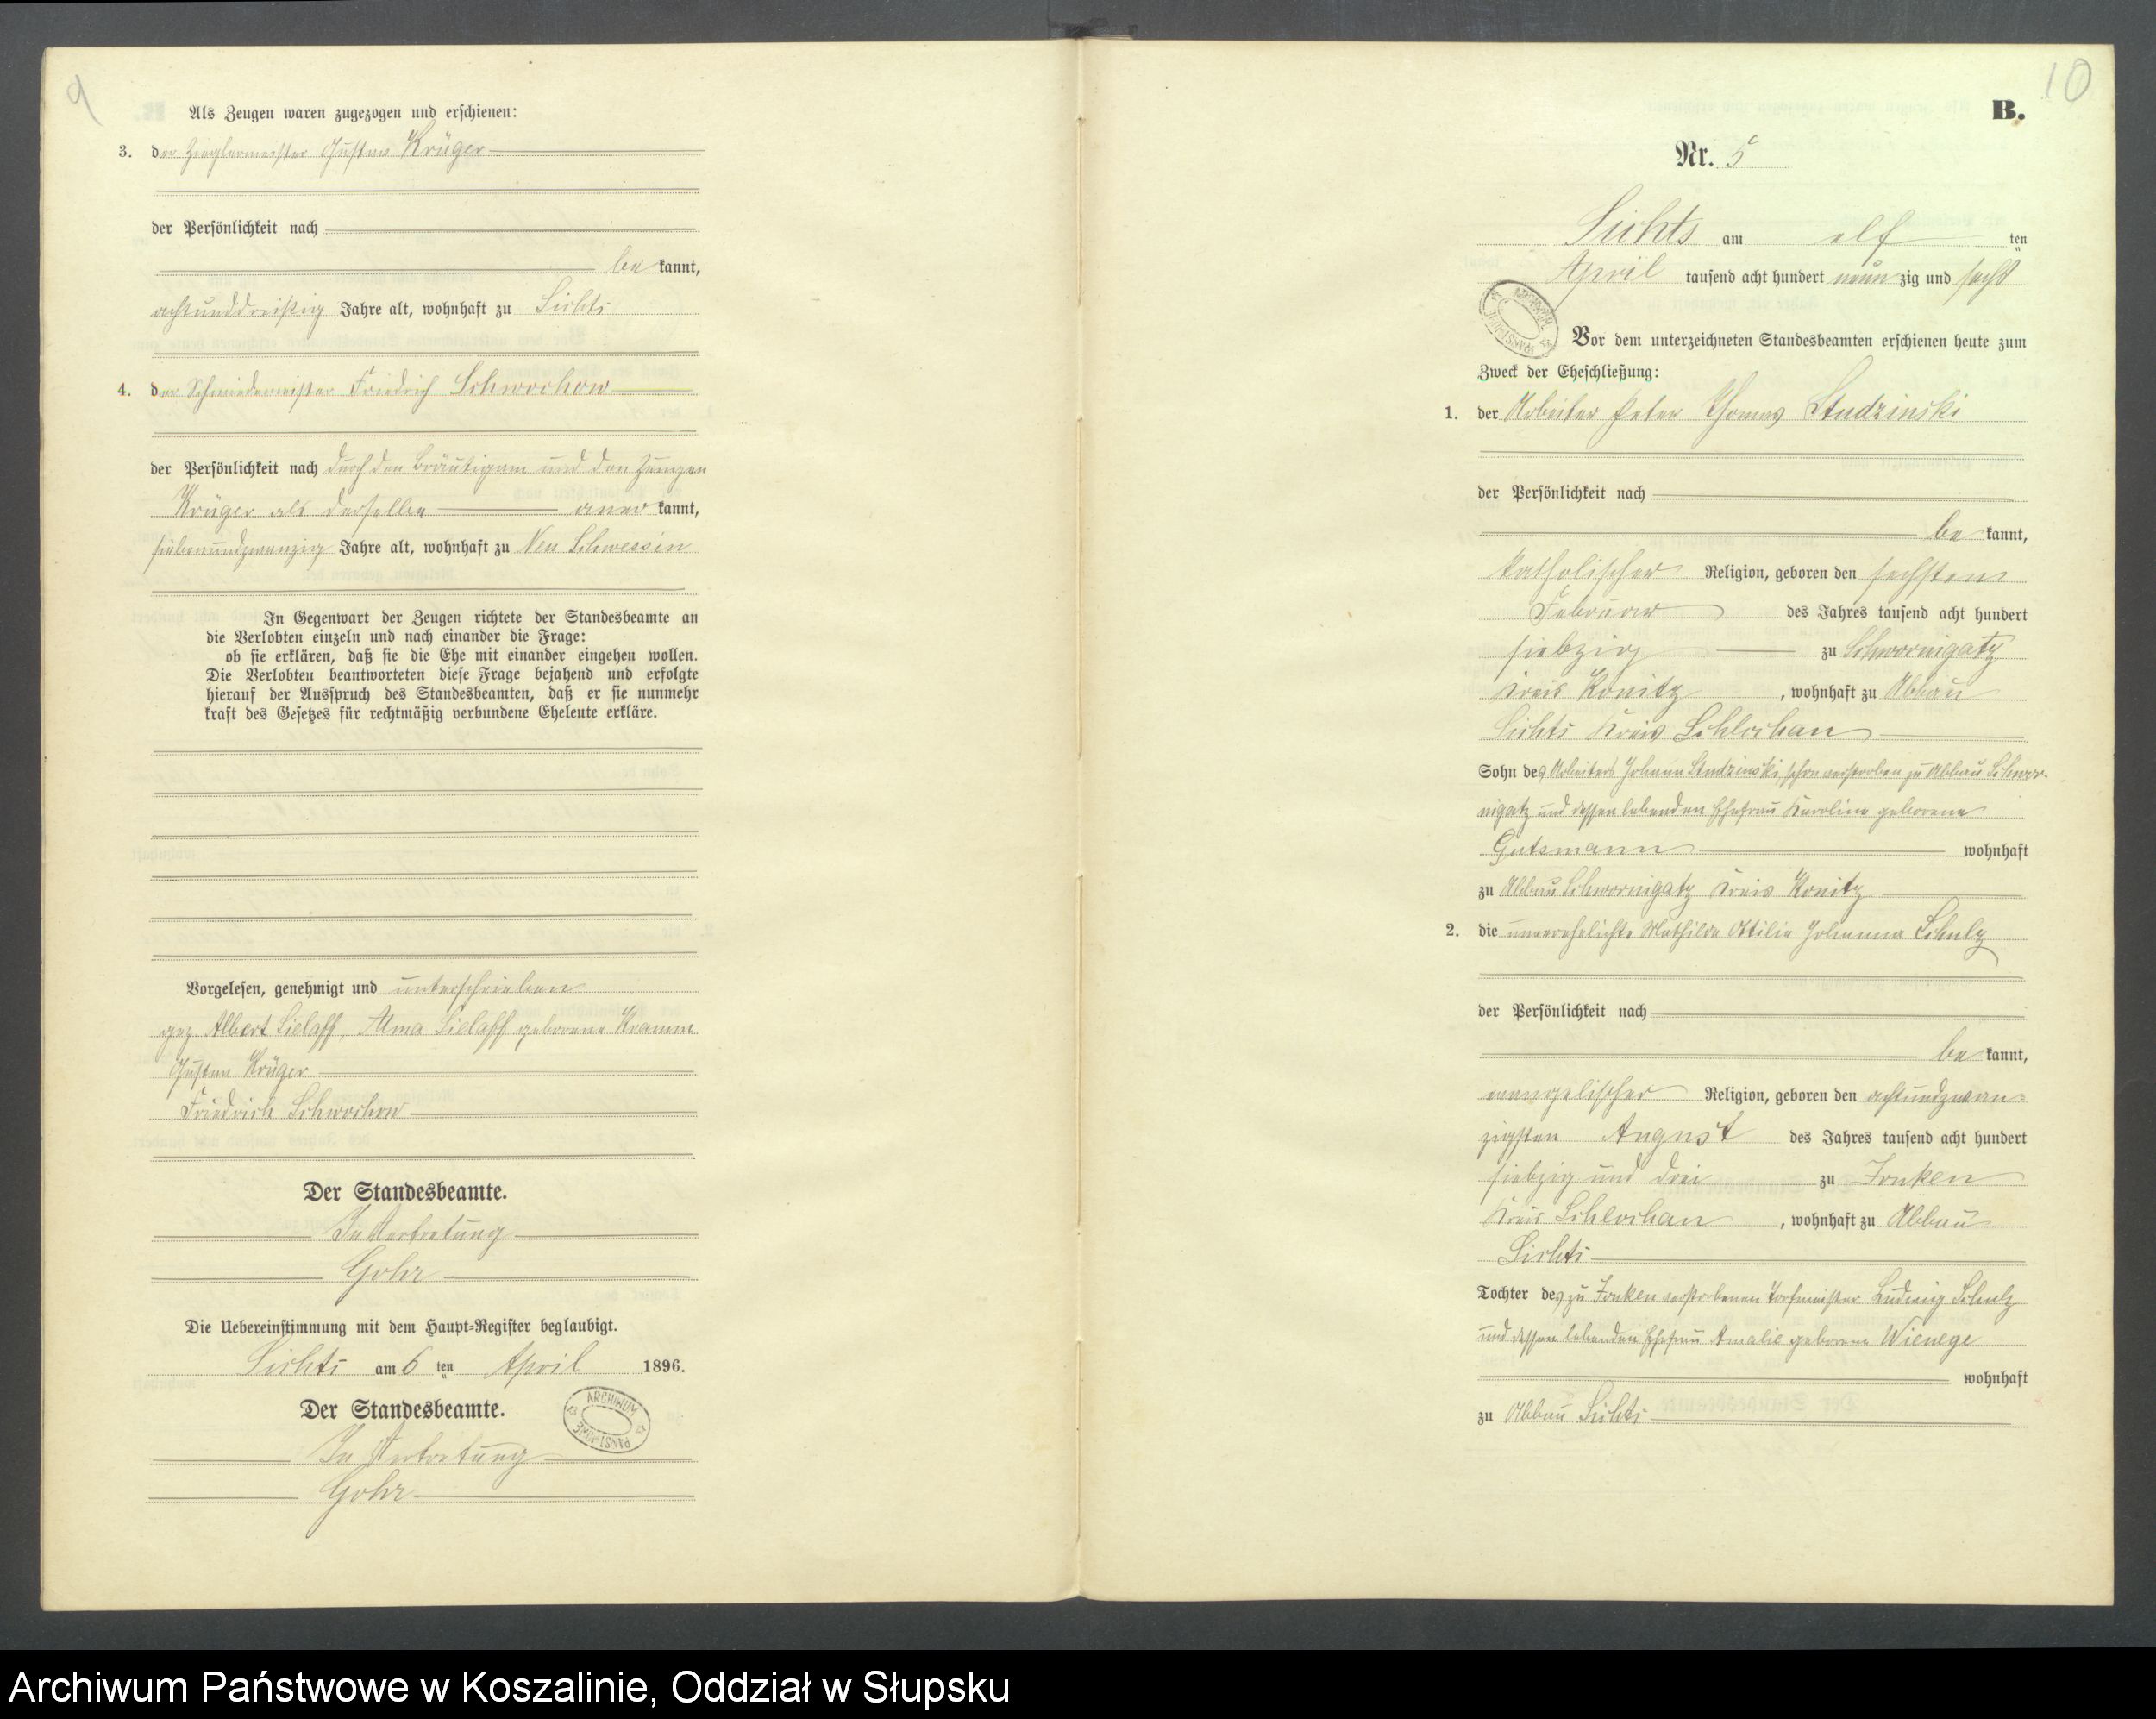 9
Als Zeugen waren zugezogen und erschienen:
3. der Zieglermeister Gustav Krüger
der Persönlichkeit nach
be kannt,
achtunddreißig Jahre alt, wohnhaft zu Sichts
4. der Schmiedemeister Friedrich Schwochow
der Persönlichkeit nach durch den Bräutigam und den Zeugen
Krüger als derselbe aner kannt,
siebenundzwanzig Jahre alt, wohnhaft zu Neu Schwessin
In Gegenwart der Zeugen richtete der Standesbeamte an
die Verlobten einzeln und nach einander die Frage:
ob sie erklären, daß sie die Ehe mit einander eingehen wollen.
Die Verlobten beantworteten diese Frage bejahend und erfolgte
hierauf der Ausspruch des Standesbeamten, daß er sie nunmehr
kraft des Gesetzes für rechtmäßig verbundene Eheleute erkläre.
Vorgelesen, genehmigt und unterschrieben
gez. Albert Sielaff, Alma Sielaff geborene Kramm
Gustav Krüger
Friedrich Schwochow
Der Standesbeamte.
In Vertretung
Gohr
Die Uebereinstimmung mit dem Haupt-Register beglaubigt.
Sichts am 6 ten April 1896.
Der Standesbeamte.
ARCHIWUM PAŃSTWOWE
In Vertretung
Gohr
10
B.
Nr. 5
Sichts am elf ten
April tausend acht hundert neun zig und sechs
ARCHIWUM PAŃSTWOWE
Vor dem unterzeichneten Standesbeamten erschienen heute zum
Zweck der Eheschließung:
1. der Arbeiter Peter Thomas Studzinski
der Persönlichkeit nach
be kannt,
katholischer Religion, geboren den sechsten
Februar des Jahres tausend acht hundert
siebzig zu Schwornigatz
Kreis Konitz, wohnhaft zu Abbau
Sichts Kreis Schlochau
Sohn des Arbeiters Johann Studzinski, schon verstorben zu Abbau Schwor-
nigatz und dessen lebenden Ehefrau Karoline geborene
Gutsmann wohnhaft
zu Abbau Schwornigatz Kreis Konitz
2. die unverehelichte Mathilde Ottilie Johanna Schulz
der Persönlichkeit nach
be kannt,
evangelischer Religion, geboren den achtundzwan-
zigsten August des Jahres tausend acht hundert
siebzig und drei zu Fonken
Kreis Schlochau, wohnhaft zu Abbau
Sichts
Tochter des zu Fonken verstorbenen Torfmeister Ludwig Schulz
und dessen lebenden Ehefrau Amalie geborene Wienege
wohnhaft
zu Abbau Sichts
Archiwum Państwowe w Koszalinie, Oddział w Słupsku